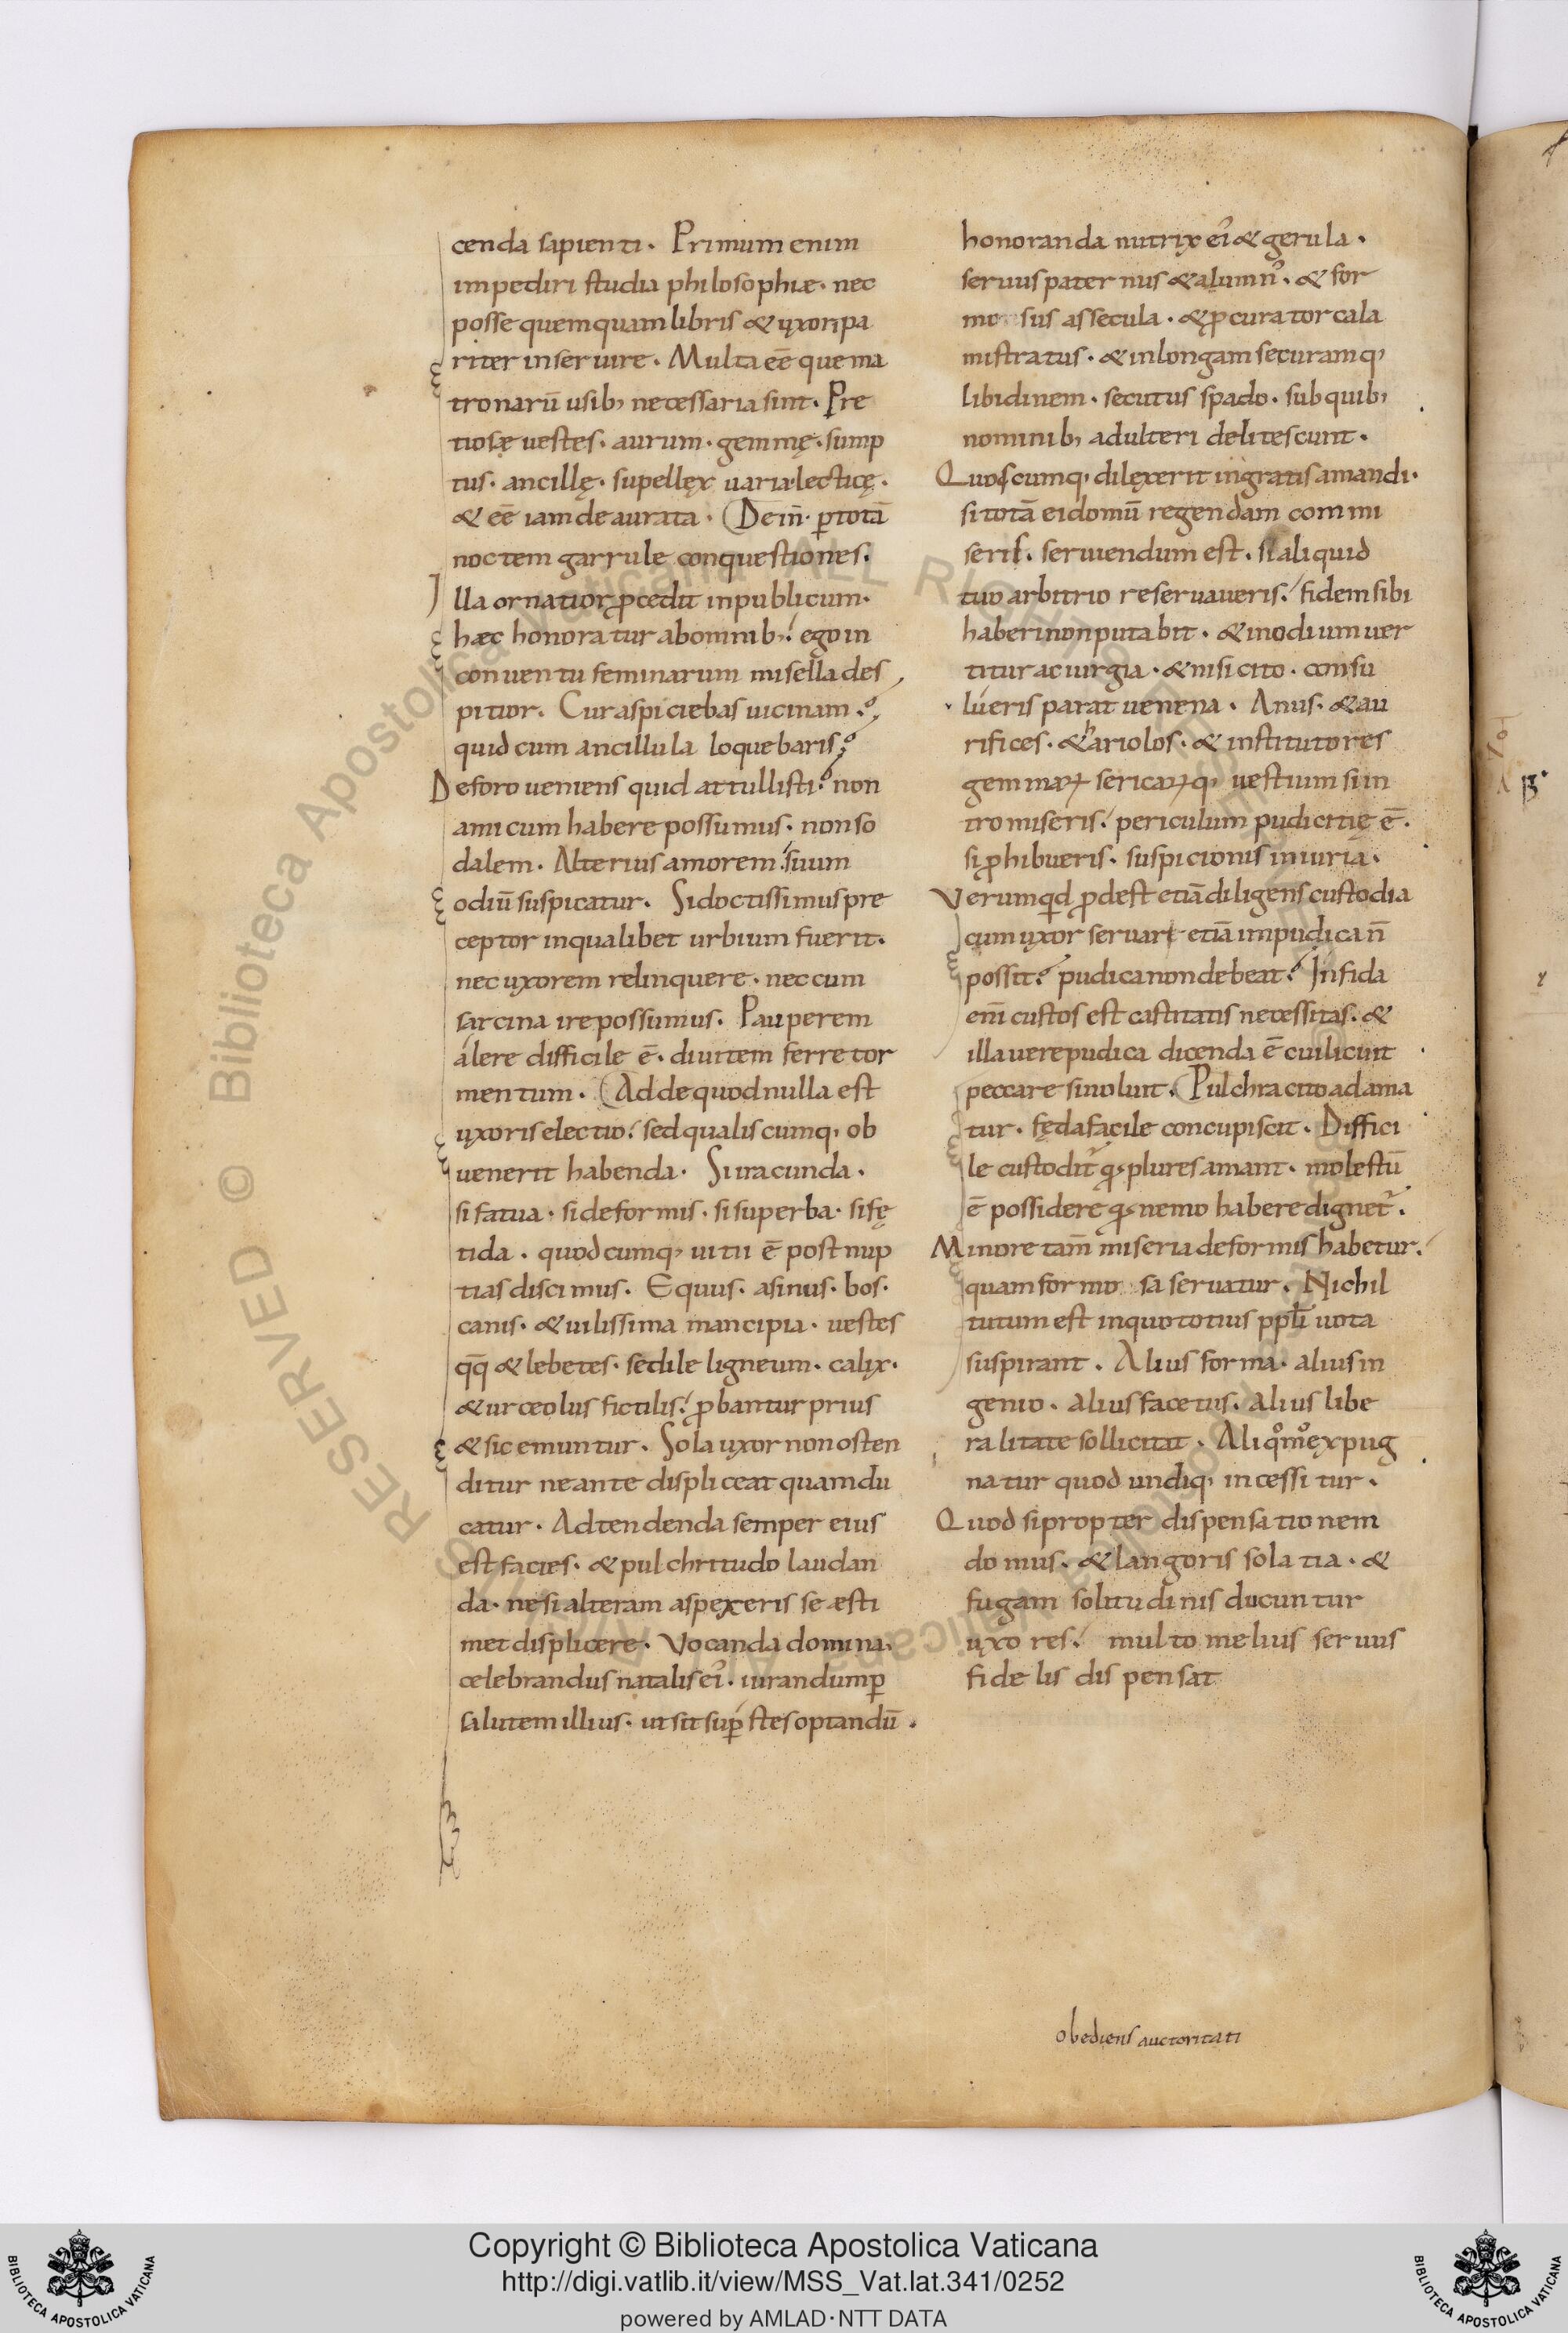 cenda sapienti. Primum enim
impediri studia philosophiæ. nec
posse quemquam libris & uxori pa
riter inseruire. Multa eē que ma
tronarū usib; necessaria sint. Pre
tiosę uestes. aurum. gemmę. sump
tus. ancillę. supellex uaria. lecticę.
& eē iam deaurata. Dein̄. ꝑ totā
noctem garrule conquestiones.
Illa ornatior ꝓcedit in publicum.
hæc honoratur ab omnib;. ego in
conuentu feminarum misella des
pitior. Cur aspiciebas uicinam?
quid cum ancillula loquebaris?
De foro ueniens quid attullisti? non
amicum habere possumus. non so
dalem. Alterius amorem. suum
odiū suspicatur. Si doctissimus pre
ceptor in qualibet urbium fuerit.
nec uxorem relinquere. nec cum
sarcina ire possumus. Pauperem
alere difficile ē. diuitem ferre tor
mentum. Adde quod nulla est
uxoris electio. sed qualiscumq; ob
uenerit habenda. Si iracunda.
si fatua. si deformis. si superba. si fę
tida. quodcumq; uitii ē post nup
tias discimus. Equus. asinus. bos.
canis. & uilissima mancipia. uestes
qq̄ & lebetes. sedile ligneum. calix.
& urceolus fictilis. ꝓbantur prius
& sic emuntur. Sola uxor non osten
ditur ne ante displiceat quam du
catur. Adtendenda semper eius
est facies. & pulchritudo laudan
da. ne si alteram aspexeris se æsti
met displicere. Vocanda domina.
celebrandus natalis ei᾽. iurandum ꝑ
salutem illius. ut sit suꝑstes optandū.
honoranda nutrix ei᾽ & gerula.
seruus paternus & alumn᾽. & for
mo sus assecula. & ꝓcurator cala
mistratus. & in longam securamq;
libidinem. secutus spado. sub quib;
nominib; adulteri delitescunt.
Quoscumq; dilexerit ingratis amandi.
si totā ei domū regendam commi
seris. seruiendum est. si aliquid
tuo arbitrio reseruaueris. fidem sibi
haberi non putabit. & in odium uer
titur ac iurgia. & nisi cito. consu
lueris parat uenena. Anus. & au
rifices. & hariolos. & institutores
gemmaꝝ sericaꝝq; uestium si in
tromiseris. periculum pudicitię ē.
si ꝓhibueris. suspicionis iniuria.
Verum qd ꝓdest etiā diligens custodia
cum uxor seruari etiā impudica n̄
possit? pudica non debeat? Infida
eni᾽ custos est castitatis necessitas. &
illa uere pudica dicenda ē cui licuit
peccare si uoluit. Pulchra cito adama
tur. fęda facile concupiscit. Diffici
le custodit᾽ qd plures amant. molestū
ē possidere qd nemo habere dignet᾽.
Minore tam̄ miseria deformis habetur.
quam formo sa seruatur. Nichil
tutum est in quo totius ppl̄i uota
suspirant. Alius forma. alius in
genio. alius facetus. alius libe
ralitate sollicitat. Aliqomo expug
natur quod undiq; incessitur.
Quod si propter dispensationem
domus. & langoris solatia. &
fugam solitudinis ducuntur
uxores. multo melius seruus
fidelis dispensat
obediens auctoritati
Copyright © Biblioteca Apostolica Vaticana
http://digi.vatlib.it/view/MSS_Vat.lat.341/0252
powered by AMLAD·NTT DATA
BIBLIOTECA APOSTOLICA VATICANA
BIBLIOTECA APOSTOLICA VATICANA